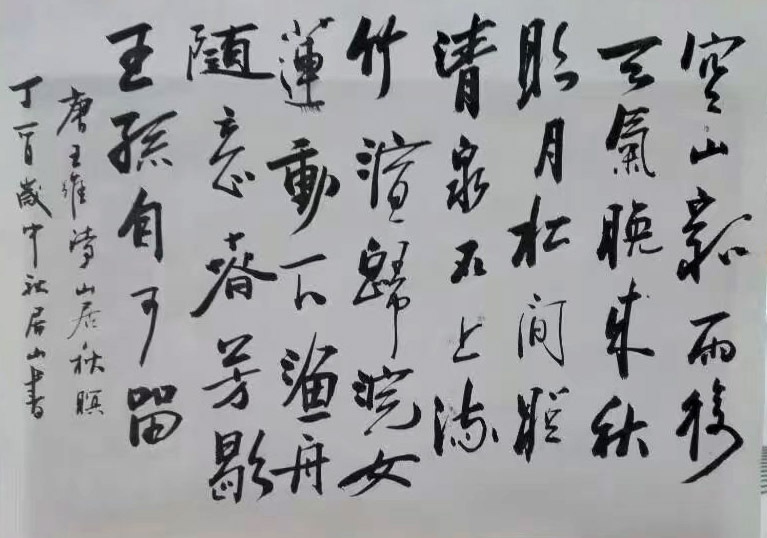 空山新雨後
天氣晚来秋
明月松间照
清泉石上流
竹喧歸浣女
蓮動下漁舟
隨意春芳歇
王孫自可留
唐王維詩山居秋暝
丁酉歲中居山書